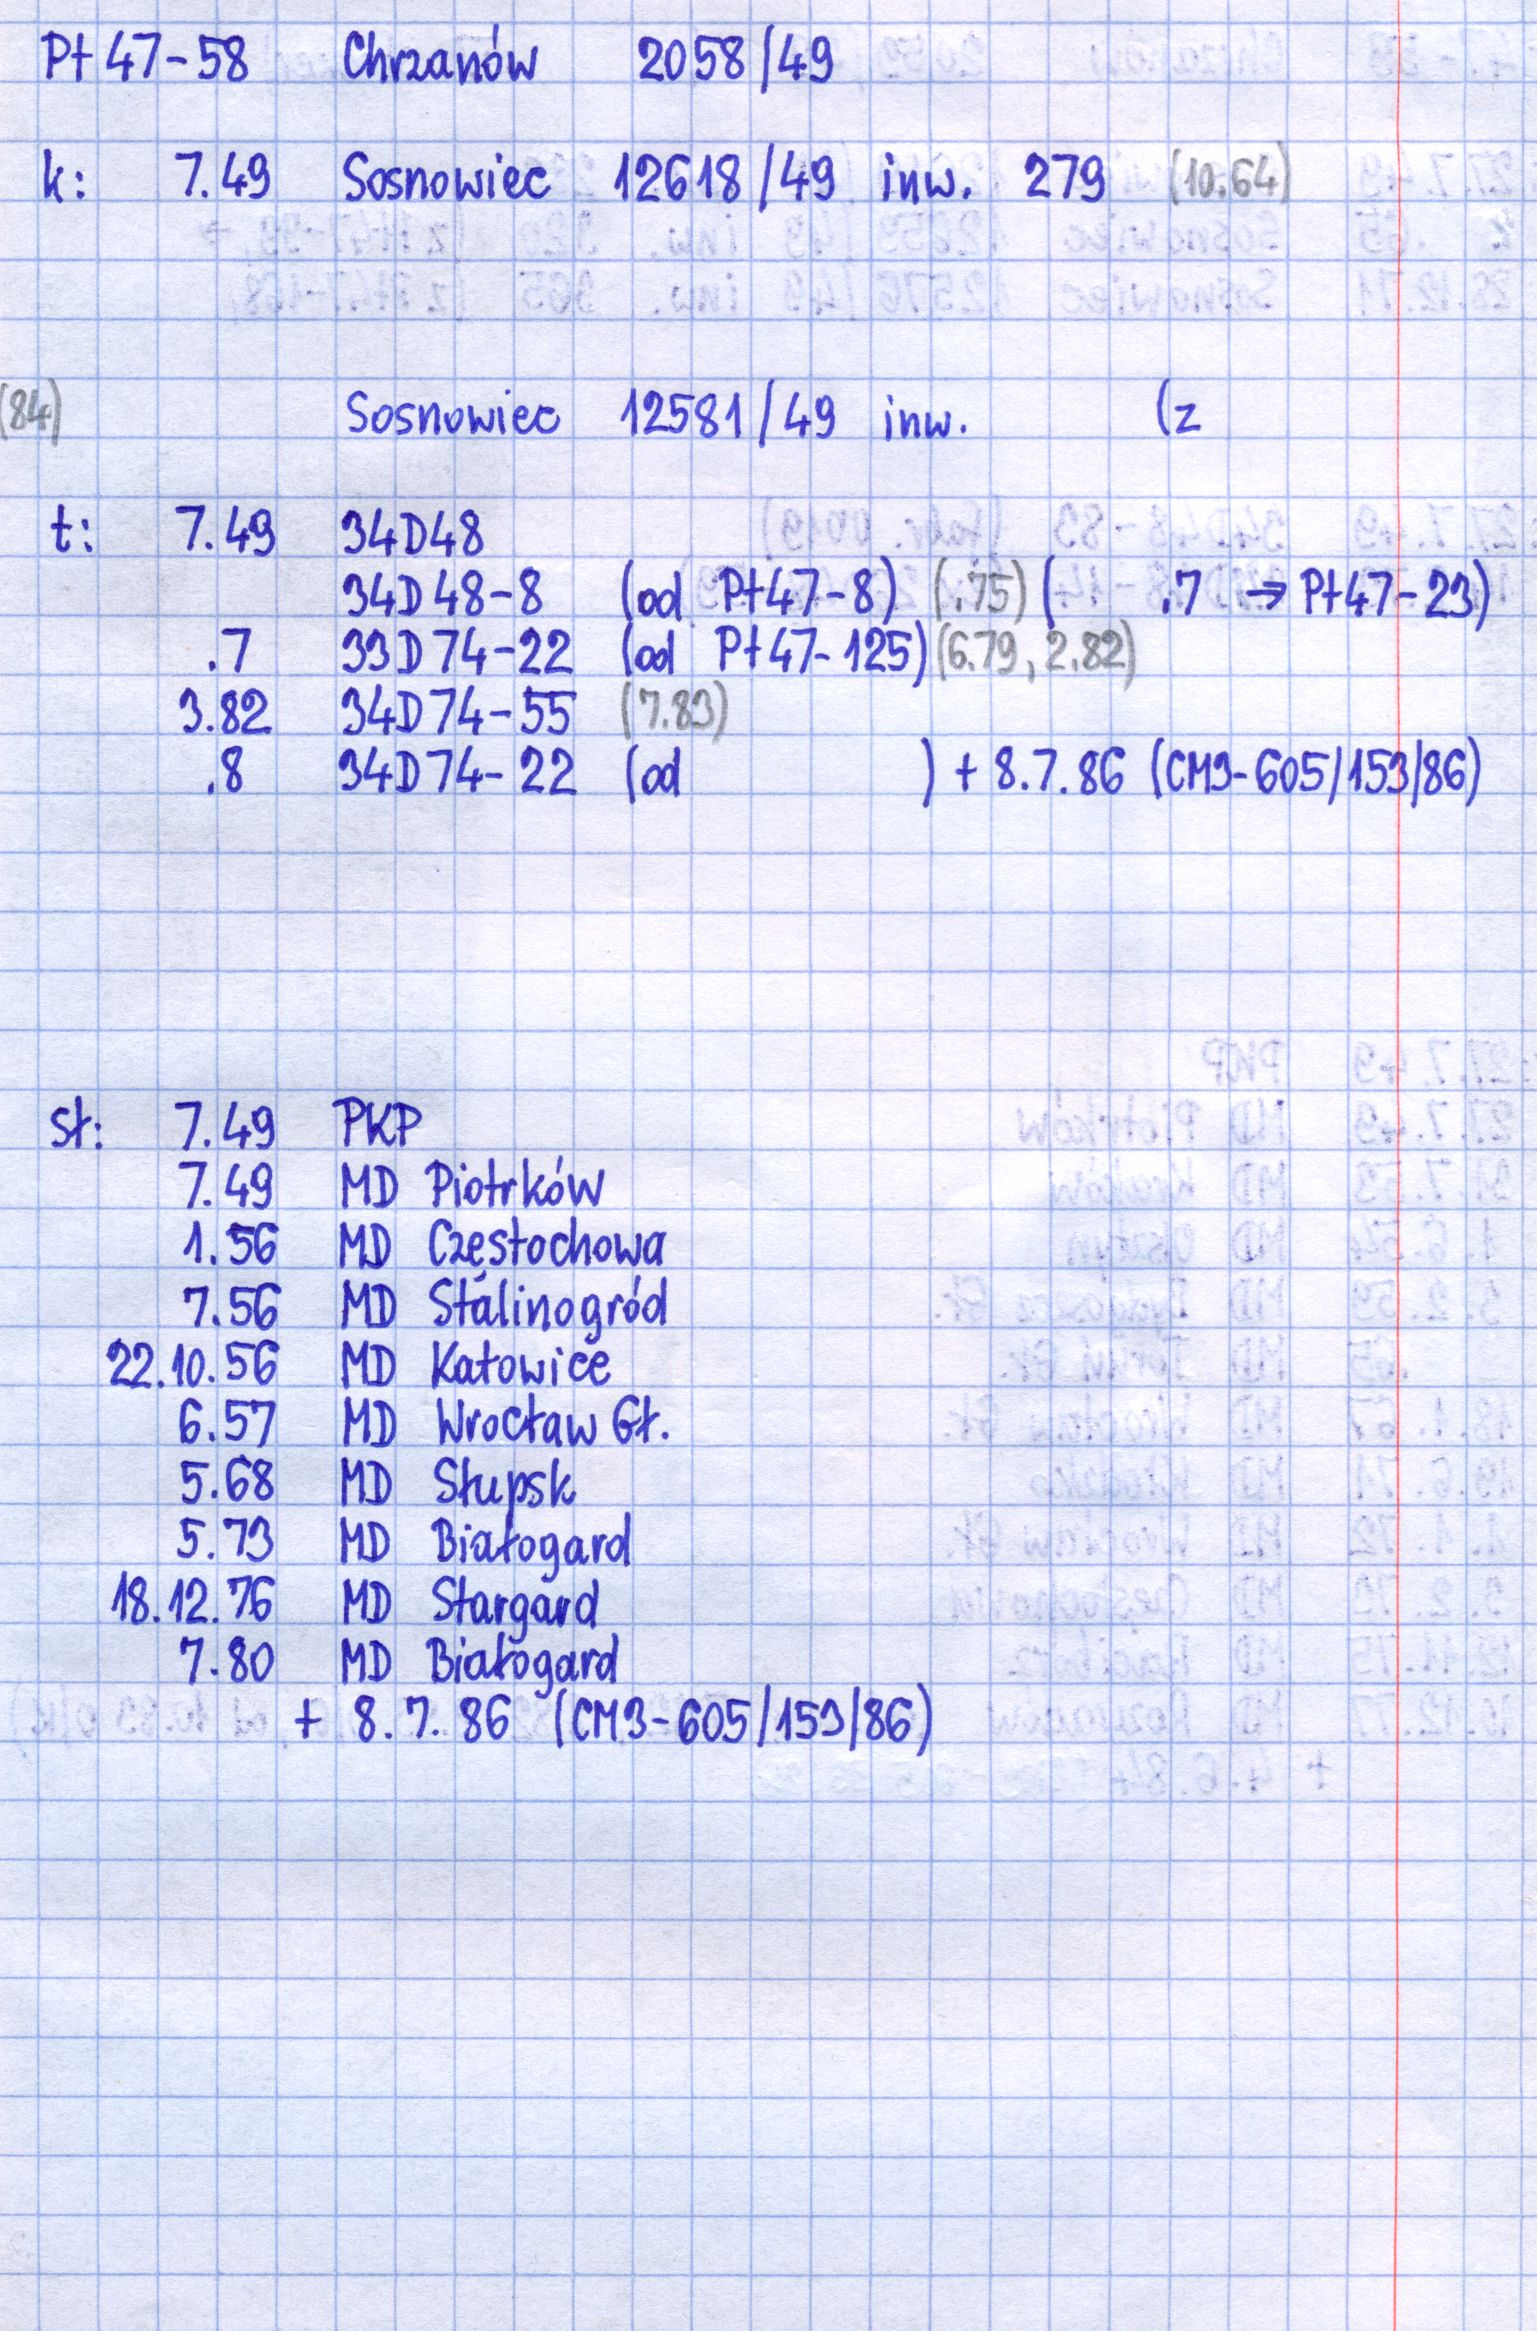 Pt47-58 Chrzanów 2058/49
k: 7.49 Sosnowiec 12618/49 inw. 279 (10.64)
(84) Sosnowiec 12581/49 inw. (z
t: 7.49 34D48
34D48-8 (od Pt47-8) (.75) ( .7 → Pt47-23)
.7 33D74-22 (od Pt47-125) (6.79, 2.82)
3.82 34D74-55 (7.83)
.8 34D74-22 (od ) + 8.7.86 (CM3-605/153/86)
st: 7.49 PKP
7.49 MD Piotrków
1.56 MD Częstochowa
7.56 MD Stalinogród
22.10.56 MD Katowice
6.57 MD Wrocław Gł.
5.68 MD Słupsk
5.73 MD Białogard
18.12.76 MD Stargard
7.80 MD Białogard
+ 8.7.86 (CM3-605/153/86)